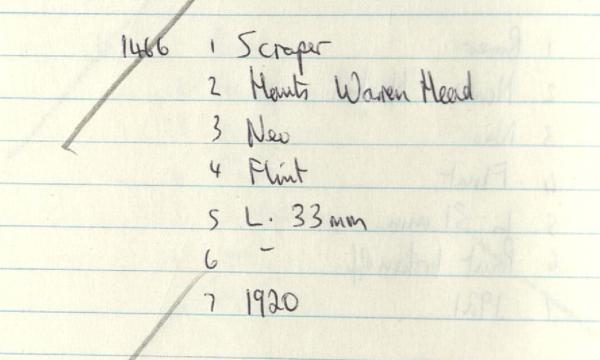 1466 1 Scraper
2 Warren Head
3 Neo
4 Flint
5 L. 33mm
6 -
7 1920